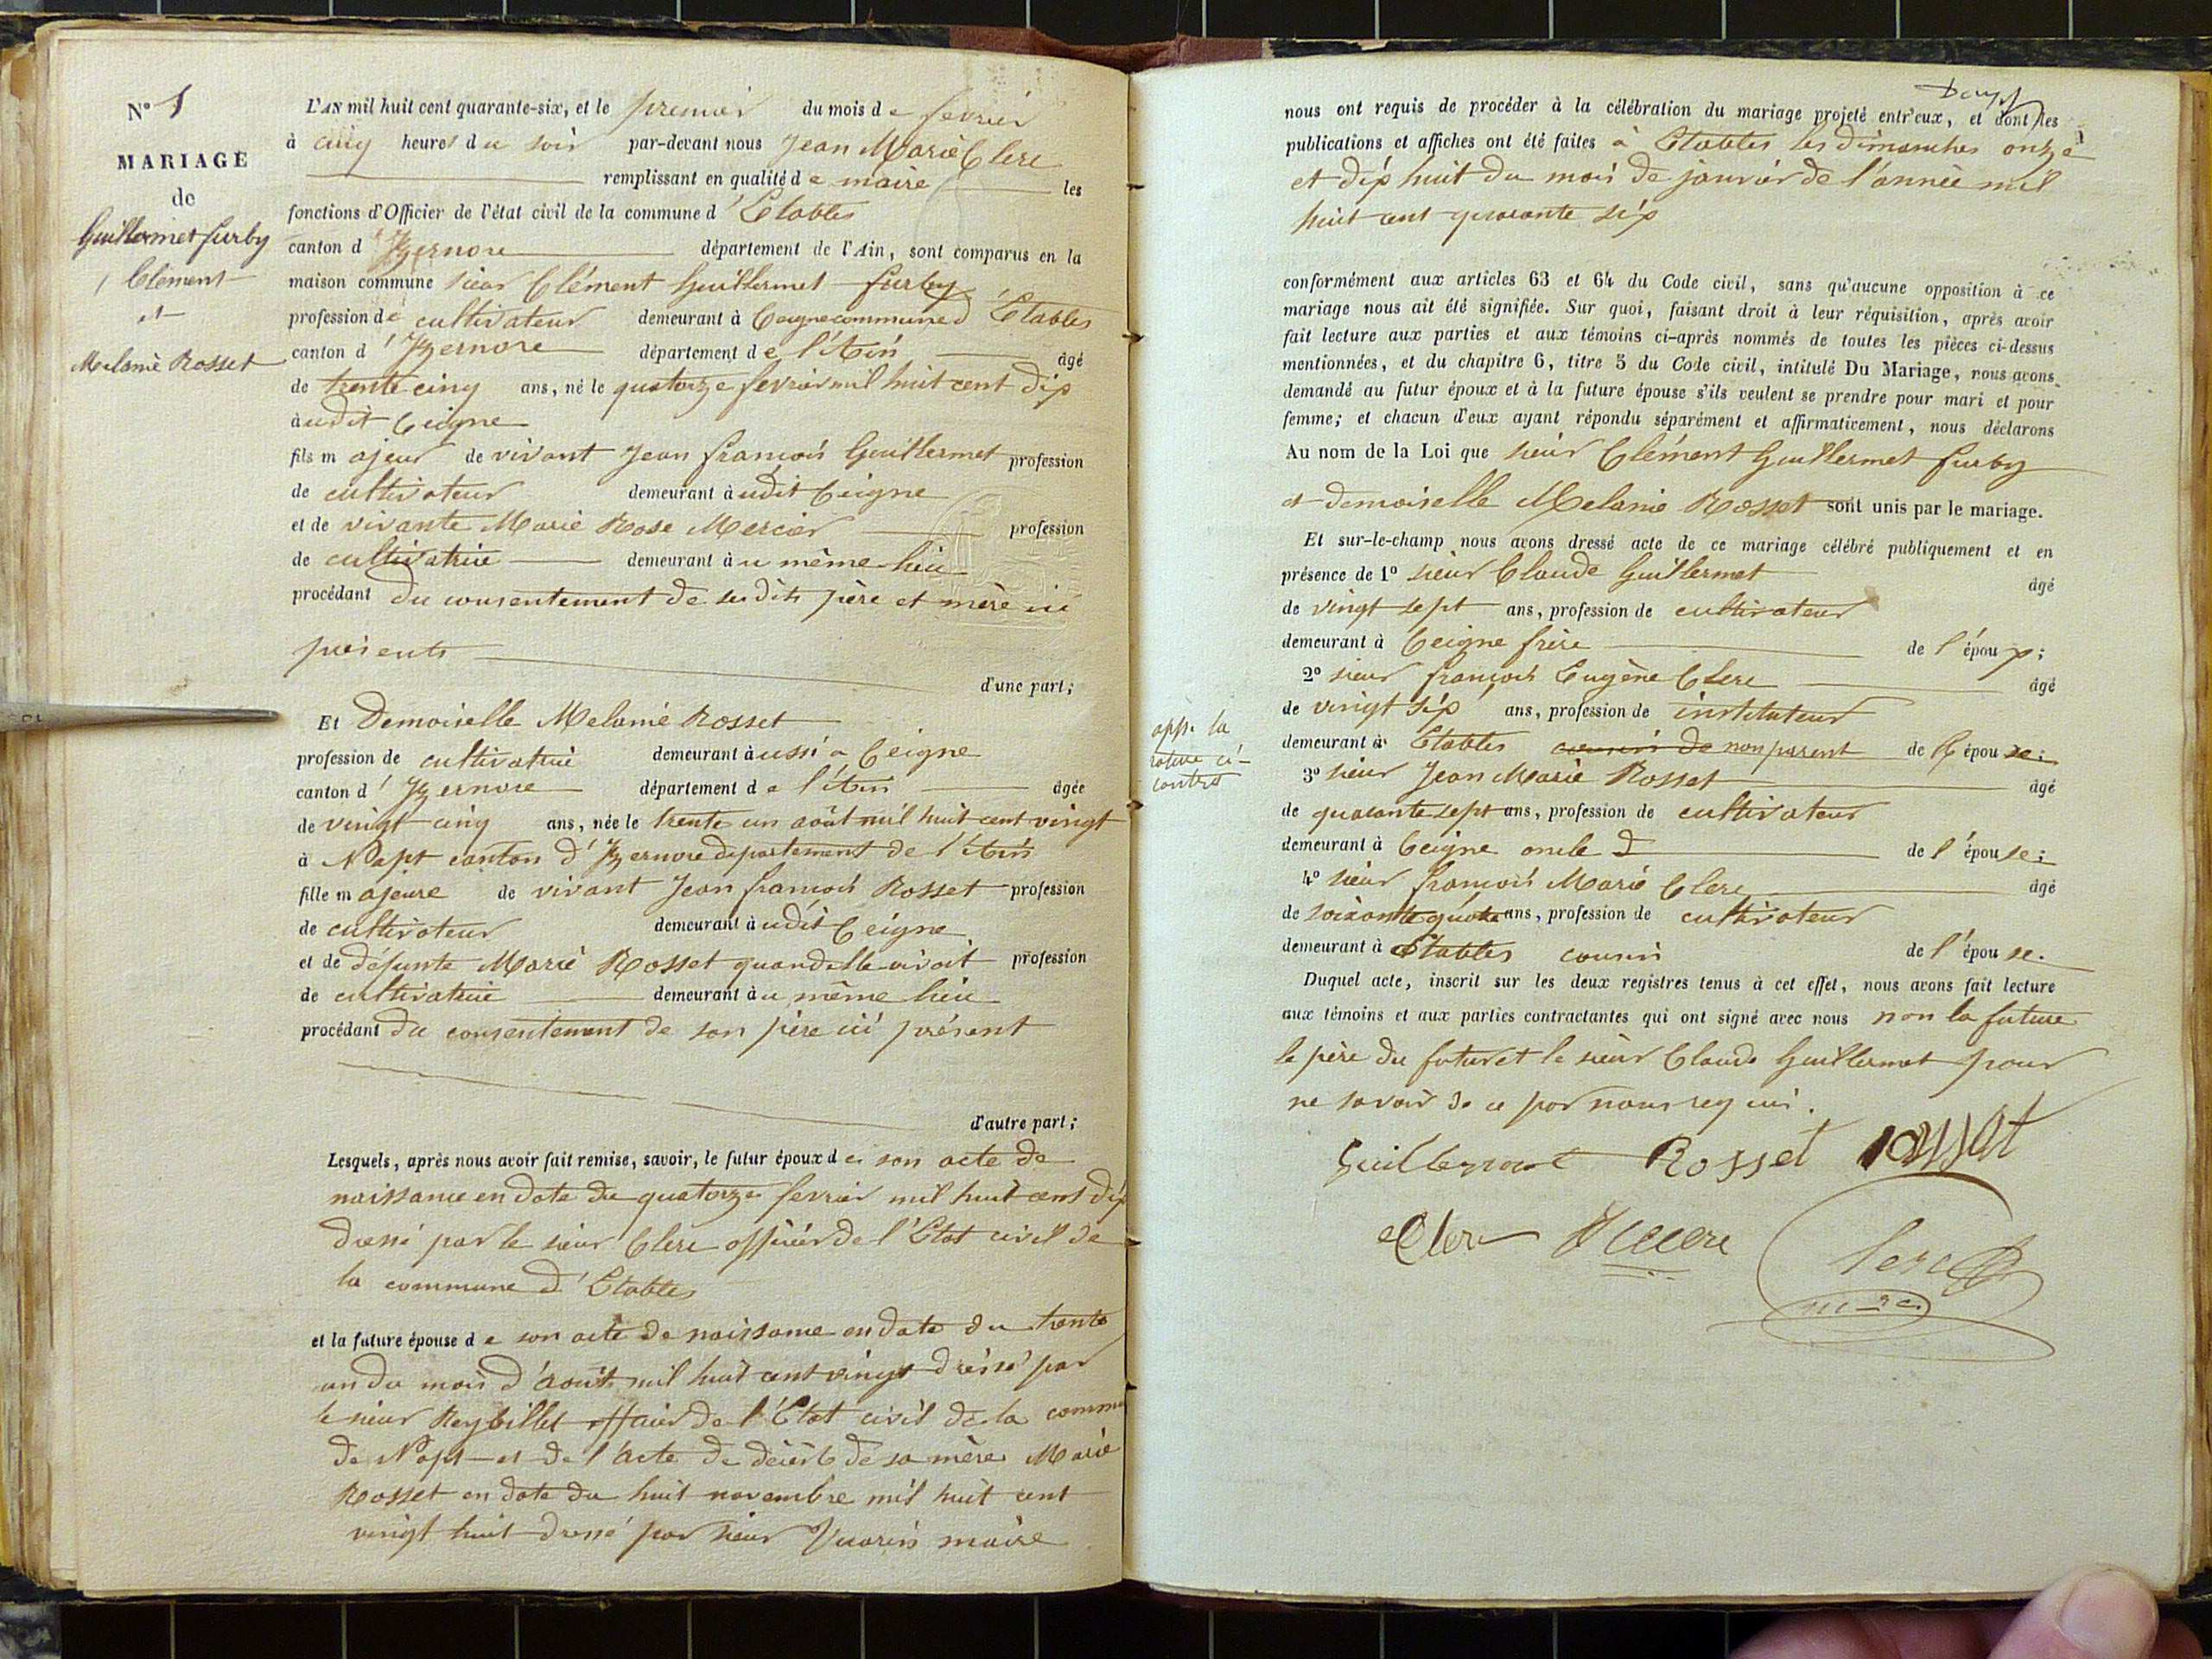 N° 1
MARIAGE
de
Guillermet furby
Clément
et
Melanie Rosset
L'AN mil huit cent quarante-six, et le premier du mois de fevrier
à cinq heures du soir par-devant nous Jean Marie Clerc
remplissant en qualité de maire les
fonctions d'Officier de l'état civil de la commune d'Etables
canton d'Izernore département de l'Ain, sont comparus en la
maison commune sieur Clément Guillermet furby
profession de cultivateur demeurant à Ceigne commune d'Etables
canton d'Izernore département de l'Ain âgé
de trente cinq ans, né le quatorze fevrier mil huit cent dix
audit Ceigne
fils majeur de vivant Jean françois Guillermet profession
de cultivateur demeurant audit Ceigne
et de vivante Marie Rose Mercier profession
de cultivatrice demeurant au même lieu
procédant du consentement de sesdits père et mère ici
présents
d'une part;
Et Demoiselle Melanie Rosset
profession de cultivatrice demeurant aussi a Ceigne
canton d'Izernore département de l'Ain âgée
de vingt cinq ans, née le trente un août mil huit cent vingt
à Napt canton d'Izernore département de l'Ain
fille majeure de vivant Jean françois Rosset profession
de cultivateur demeurant audit Ceigne
et de défunte Marie Rosset quand elle vivait profession
de cultivatrice demeurant au même lieu
procédant du consentement de son père ici présent
d'autre part;
Lesquels, après nous avoir fait remise, savoir, le futur époux de son acte de
naissance en date du quatorze fevrier mil huit cent dix
dressé par le sieur Clerc officier de l'Etat civil de
la commune d'Etables
et la future épouse de son acte de naissance en date du trente
un du mois d'août mil huit cent vingt dressé par
le sieur Reybillet officier de l'Etat civil de la commune
de Napt et de l'acte de décès de sa mère Marie
Rosset en date du huit novembre mil huit cent
vingt huit dressé par sieur Vuarin maire
nous ont requis de procéder à la célébration du mariage projeté entr'eux, et dont les
publications et affiches ont été faites à Etables les dimanches onze
et dix huit du mois de janvier de l'année mil
huit cent quarante six
conformément aux articles 63 et 64 du Code civil, sans qu'aucune opposition à ce
mariage nous ait été signifiée. Sur quoi, faisant droit à leur réquisition, après avoir
fait lecture aux parties et aux témoins ci-après nommés de toutes les pièces ci-dessus
mentionnées, et du chapitre 6, titre 5 du Code civil, intitulé Du Mariage, nous avons
demandé au futur époux et à la future épouse s'ils veulent se prendre pour mari et pour
femme; et chacun d'eux ayant répondu séparément et affirmativement, nous déclarons
Au nom de la Loi que sieur Clément Guillermet furby
et demoiselle Melanie Rosset sont unis par le mariage.
Et sur-le-champ nous avons dressé acte de ce mariage célébré publiquement et en
présence de 1° sieur Claude Guillermet âgé
de vingt sept ans, profession de cultivateur
demeurant à Ceigne frère de l'époux;
2° sieur françois Eugène Clerc âgé
de vingt six ans, profession de instituteur
demeurant à Etables cousin de non parent de l'épouse;
app. la
rature ci-
contre
3° sieur Jean Marie Rosset âgé
de quarante sept ans, profession de cultivateur
demeurant à Ceigne oncle de l'épouse;
4° sieur françois Marie Clerc âgé
de ans, profession de cultivateur
demeurant à Etables cousin de l'épouse.
Duquel acte, inscrit sur les deux registres tenus à cet effet, nous avons fait lecture
aux témoins et aux parties contractantes qui ont signé avec nous non la future
le père du futur et le sieur Claude Guillermet pour
ne savoir de ce par nous requis.
Guillermet Rosset rosset
Clerc Clerc